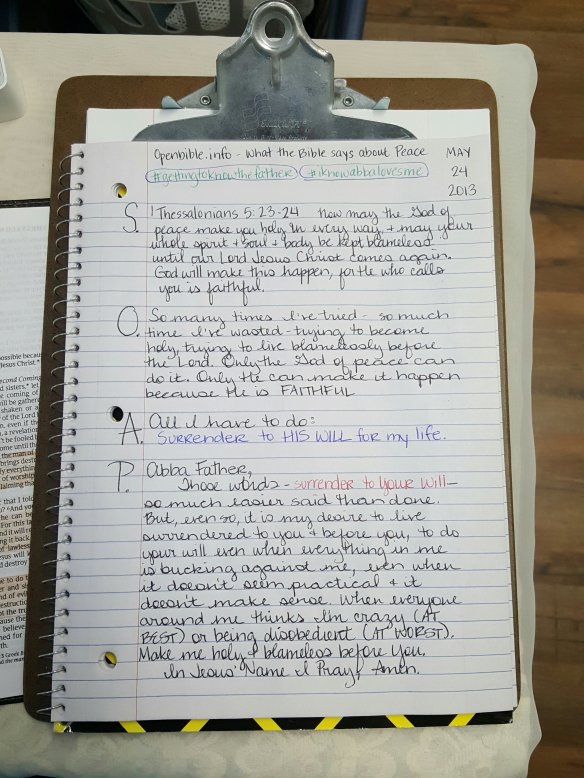 Openbible.info - What the Bible says about Peace
MAY
24
2013
#gettingtoknowthefather #iknowabbalovesme
S. 1 Thessalonians 5:23-24 Now may the God of
peace make you holy in every way, + may your
whole spirit + soul + body be kept blameless
until our Lord Jesus Christ comes again.
God will make this happen, for He who calls
you is faithful.
O. So many times I've tried - so much
time I've wasted - trying to become
holy, trying to live blamelessly before
the Lord. Only the God of peace can
do it. Only He can make it happen
because He is FAITHFUL
A. All I have to do:
Surrender to HIS WILL for my life.
P. Abba Father,
Those words - surrender to your will -
so much easier said than done.
But, even so, it is my desire to live
surrendered to you + before you, to do
your will even when everything in me
is bucking against me, even when
it doesn't seem practical + it
doesn't make sense. When everyone
around me thinks I'm crazy (AT
BEST) or being disobedient (AT WORST).
Make me holy + blameless before You.
In Jesus' Name I Pray, Amen.